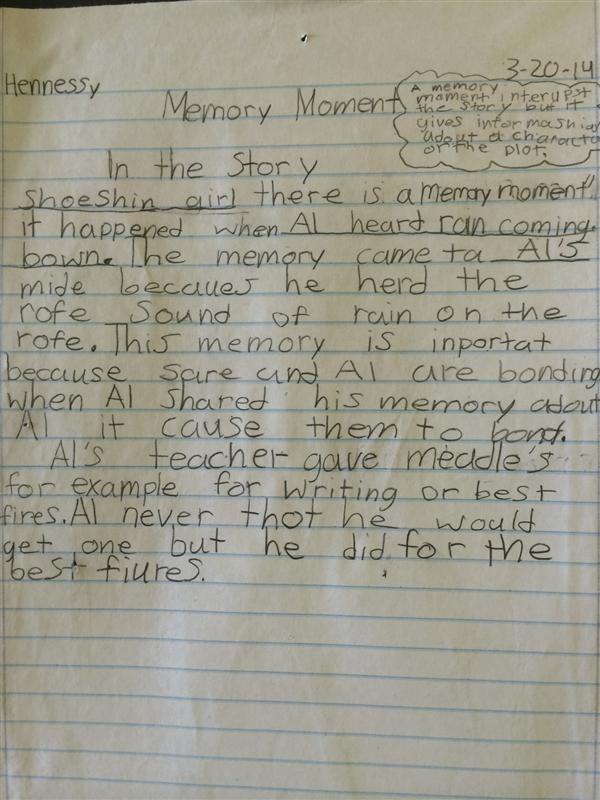 3-20-14
Hennessy
Memory Moment
A memory
moment interupst
the story but it
gives informashion
adout a character
or the plot.
In the Story
Shoeshin girl there is a memory moment".
it happened when Al heard ran coming.
bown. The memory came ta Al's
mide becaues he herd the
rofe sound of rain on the
rofe. This memory is inportat
because Sare and Al are bonding
when Al shared his memory adout
Al it cause them to bond.
Al's teacher gave meddle's
for example for writing or best
fires. Al never thot he would
get one but he did for the
best fiures.